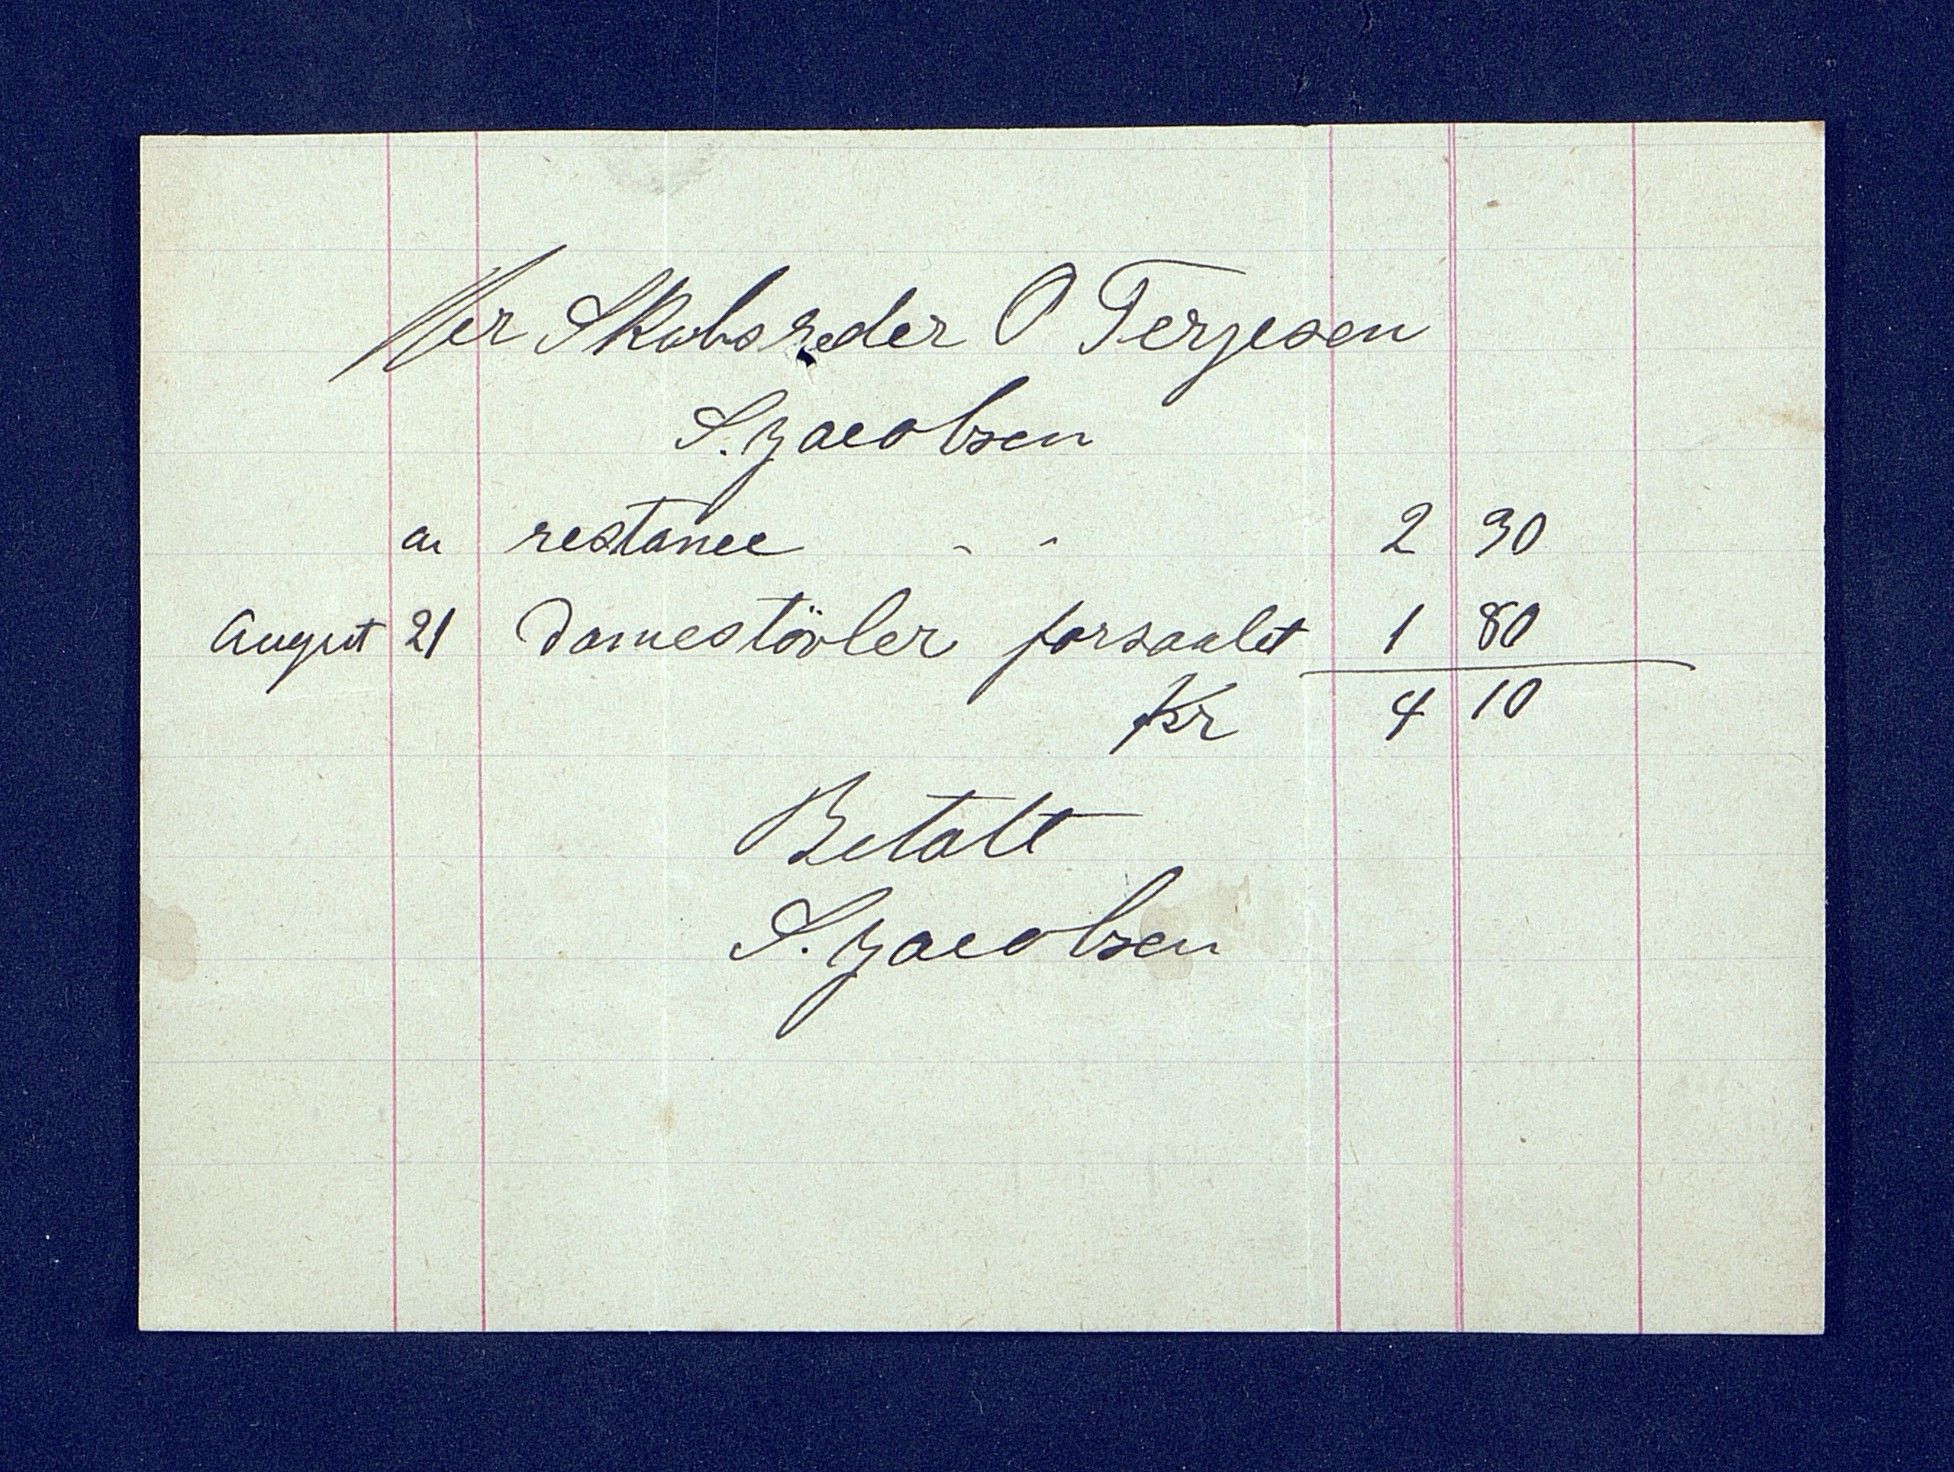 Her Skibsreder O Terjesen
S. Jacobsen
an restance - - 2 30
August 21 Damestövler forsaalet 1 80
Kr 4 10
Betalt
S. Jacobsen